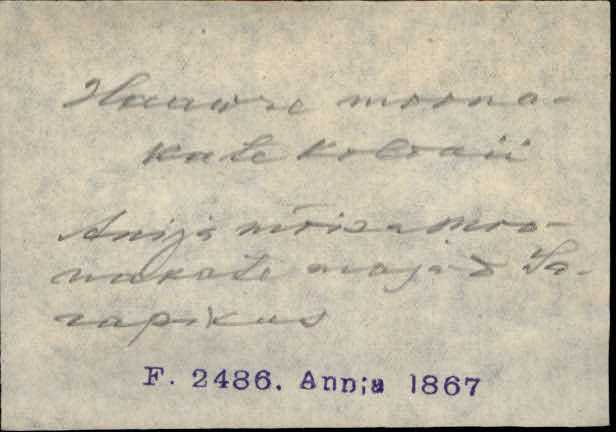 Haawre moona-
kate koloaii
Anija mõisa moo-
nakate majad Sa-
rapikus
F. 2486. Annja 1867